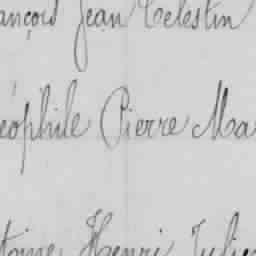 ançois Jean Celestin
éophile Pierre Ma
toine Henri Julie